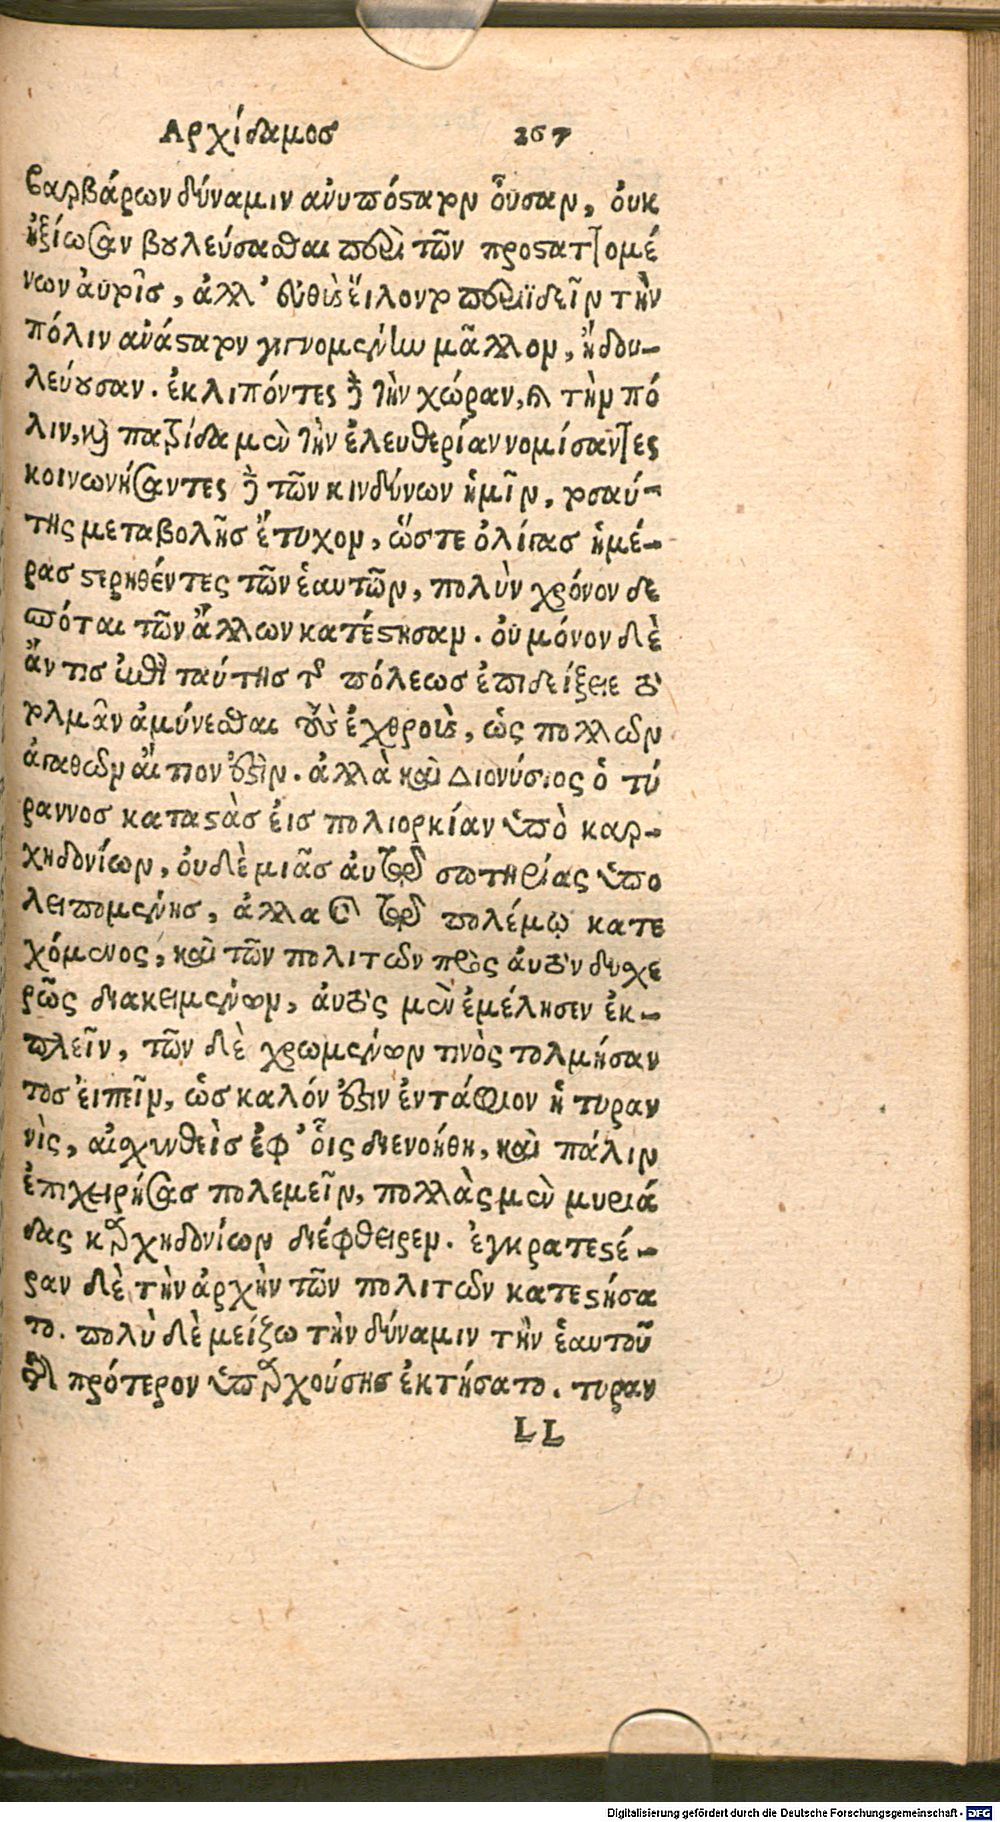 Αρχίδαμοσ 267
βαρβάρων δύναμιν ανυπόστατον οὖσαν, ὀυκ
ἠξίωσαν βουλεύσασθαι περὶ τῶν προσταττομέ
νων ἀυτοῖσ, ἀλλ' ἐυθὺς ἕιλοντο περιϊδεῖν τὴν
πόλιν ανάστατον γιγνομένην μᾶλλον, ἢ δου-
λεύουσαν. ἐκλιπόντες γὰρ τὴν χώραν, καὶ τὴν πό
λιν, καὶ πατρίδα μὲν τὴν ἐλευθερίαν νομίσαντες
κοινωνήσαντες δὲ τῶν κινδύνων ἡμῖν, τοσαύ-
της μεταβολῆσ ἔτυχον, ὥστε ὀλίγασ ἡμέ-
ρασ στερηθέντες τῶν ἑαυτῶν, πολὺν χρόνον δε
σπόται τῶν ἄλλων κατέστησαν. οὐ μόνον δὲ
ἄν τισ ἐπὶ ταύτησ τῆς πόλεωσ ἐπιδείξειε τὸ
τολμᾶν ἀμύνεσθαι τοὺς ἐχθροὺς, ὡς πολλῶν
ἀγαθῶν ἄιτιον ἐστὶν. ἀλλὰ καὶ Διονύσιος ὁ τύ
ραννοσ καταστὰσ ἐισ πολιορκίαν ὑπὸ καρ-
χηδονίων, ὀυδὲ μιᾶσ ἀυτῷ σωτηρίας ὑπο
λειπομένησ, ἀλλα καὶ τῷ πολέμῳ κατε
χόμενος, καὶ τῶν πολιτῶν πρὸς ἀυτὸν δυσχε
ρῶς διακειμένων, ἀυτὸς μὲν ἐμέλησεν ἐκ-
πλεῖν, τῶν δὲ χρωμένων τινὸς τολμήσαν
τοσ ἐιπεῖν, ὡσ καλόν ἐστιν ἐντάφιον ἡ τυραν
νὶς, αἰσχυνθεὶσ ἐφ' οἷς διενοήθη, καὶ πάλιν
ἐπιχειρήσας πολεμεῖν, πολλὰς μὲν μυριά
δας καρχηδονίων διέφθειρεν. ἐγκρατεστέ-
ραν δὲ τὴν ἀρχὴν τῶν πολιτῶν κατεστήσα
το. πολὺ δὲ μείζω τὴν δύναμιν τὴν ἑαυτοῦ
τῆς πρότερον ὑπαρχούσησ ἐκτήσατο. τυραν
LL
Digitalisierung gefördert durch die Deutsche Forschungsgemeinschaft - DFG